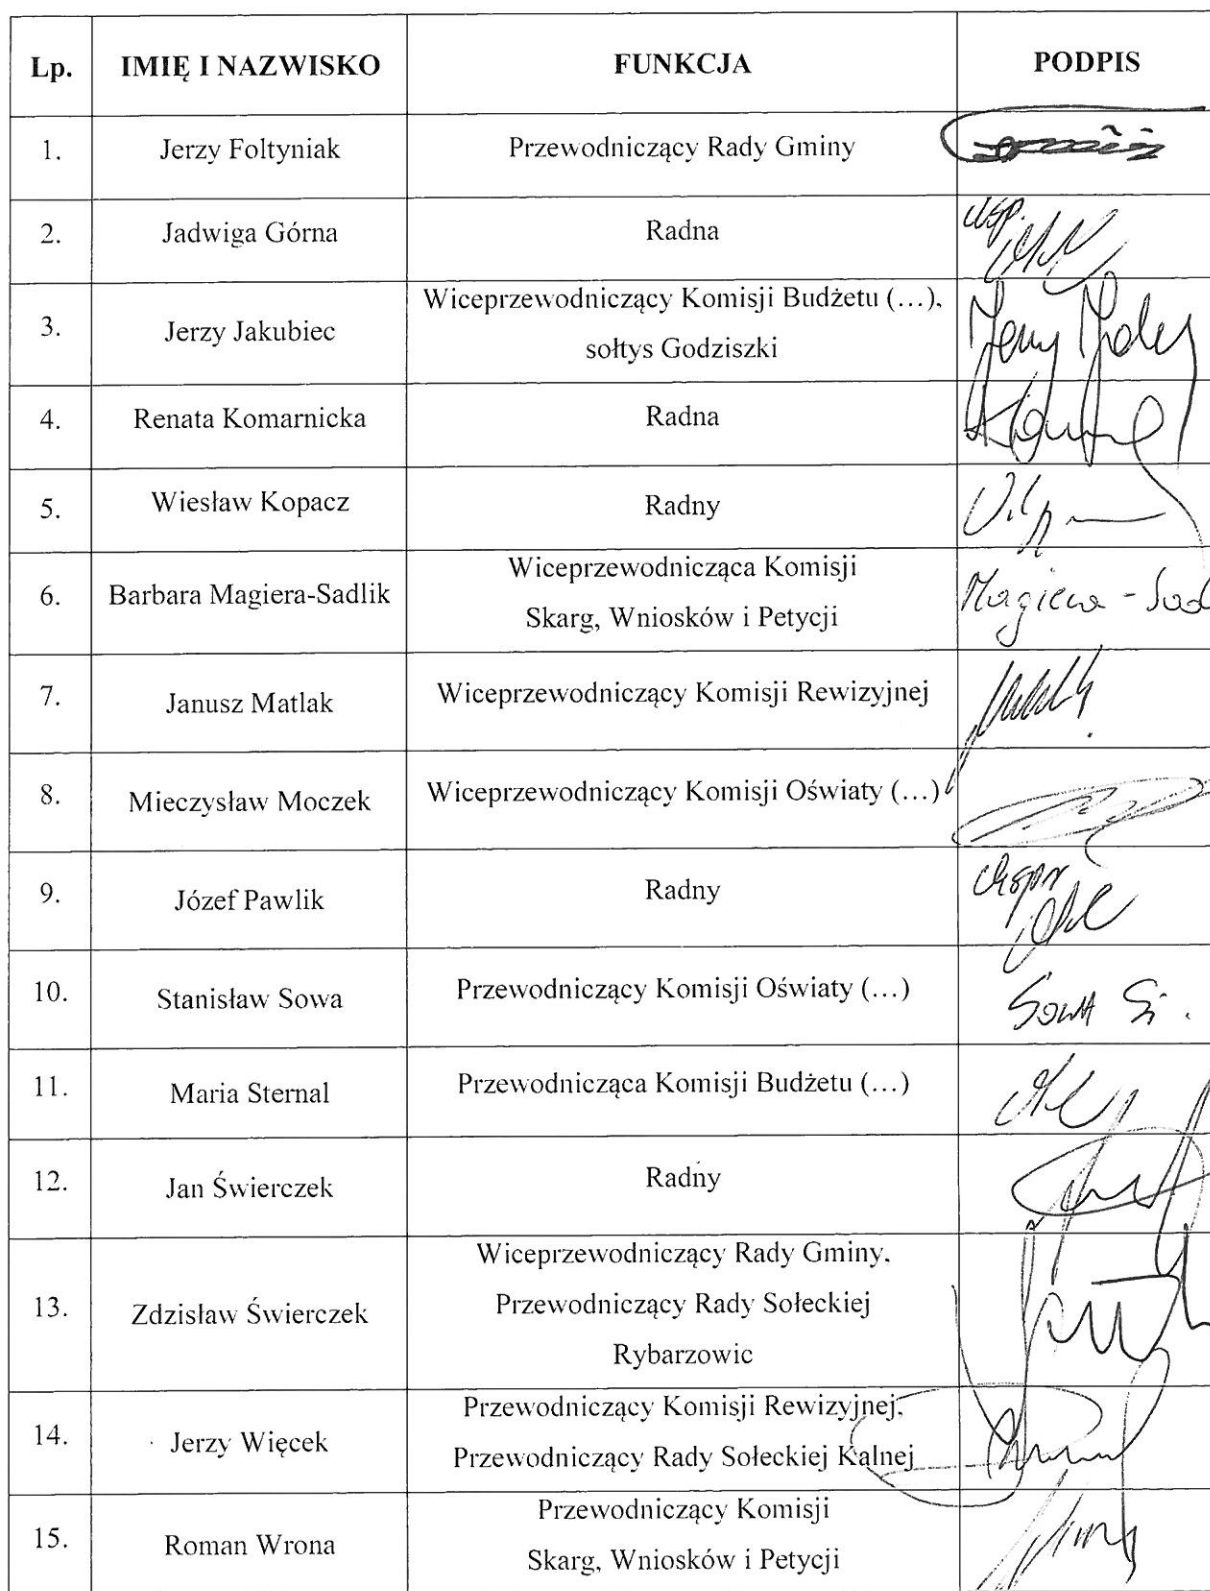 Lp. IMIĘ I NAZWISKO FUNKCJA PODPIS
1. Jerzy Foltyniak Przewodniczący Rady Gminy
2. Jadwiga Górna Radna
3. Jerzy Jakubiec Wiceprzewodniczący Komisji Budżetu (…),
sołtys Godziszki
4. Renata Komarnicka Radna
5. Wiesław Kopacz Radny
6. Barbara Magiera-Sadlik Wiceprzewodnicząca Komisji
Skarg, Wniosków i Petycji
Magiera - Sad
7. Janusz Matlak Wiceprzewodniczący Komisji Rewizyjnej
8. Mieczysław Moczek Wiceprzewodniczący Komisji Oświaty (…)
9. Józef Pawlik Radny
10. Stanisław Sowa Przewodniczący Komisji Oświaty (…) Sowa St.
11. Maria Sternal Przewodnicząca Komisji Budżetu (…)
12. Jan Świerczek Radny
13. Zdzisław Świerczek Wiceprzewodniczący Rady Gminy,
Przewodniczący Rady Sołeckiej
Rybarzowic
14. Jerzy Więcek Przewodniczący Komisji Rewizyjnej,
Przewodniczący Rady Sołeckiej Kalnej
15. Roman Wrona Przewodniczący Komisji
Skarg, Wniosków i Petycji